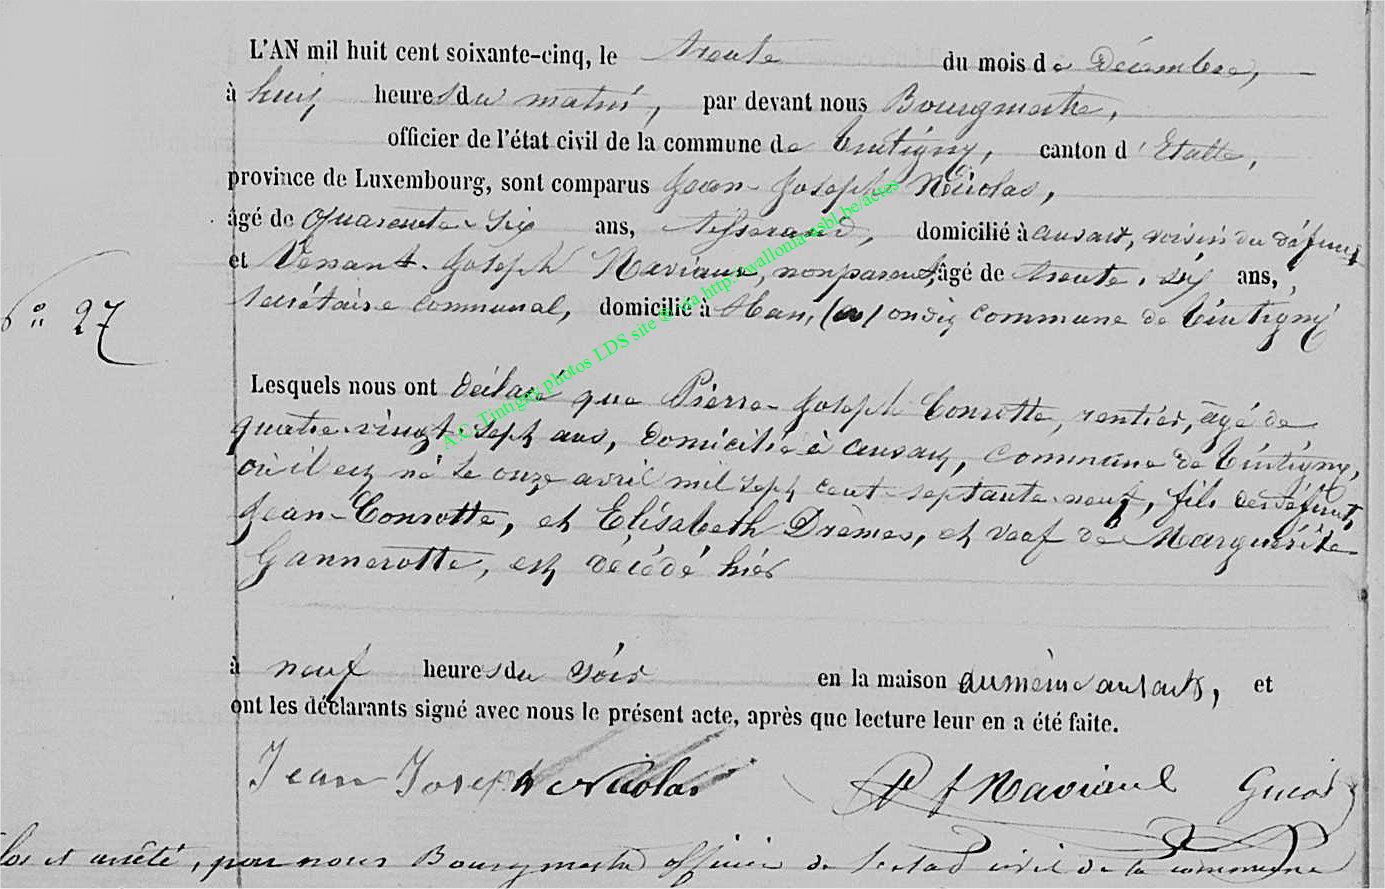 L'AN mil huit cent soixante-cinq, le trente du mois de Décembre,
à huit heures du matin, par devant nous Bourgmestre,
officier de l'état civil de la commune de Tintigny, canton d'Etalle,
province de Luxembourg, sont comparus Jean-Joseph Nicolas,
âgé de quarante-six ans, tisserand, domicilié à ansart, voisin du défunt
et Venant-Joseph Naviaux, non parent, âgé de trente-six ans,
secrétaire communal, domicilié à Han, commune de Tintigny
N° 27
Lesquels nous ont déclaré que Pierre-Joseph Conrotte, rentier, âgé de
quatre-vingt-sept ans, domicilié à ansart, commune de Tintigny,
où il est né le onze avril mil sept cent septante-neuf, fils des défunts
Jean-Conrotte, et Elisabeth Drèmes, et veuf de Marguérite
Gannerotte, est décédé hier
à neuf heures du soir en la maison du même ansart, et
ont les déclarants signé avec nous le présent acte, après que lecture leur en a été faite.
Jean Joseph Nicolas Naviaux
clos et arrêté, par nous Bourgmestre officier de l'état civil de la commune
A.C. Tintigny photos LDS site @ via http://wallonia-asbl.be/actes